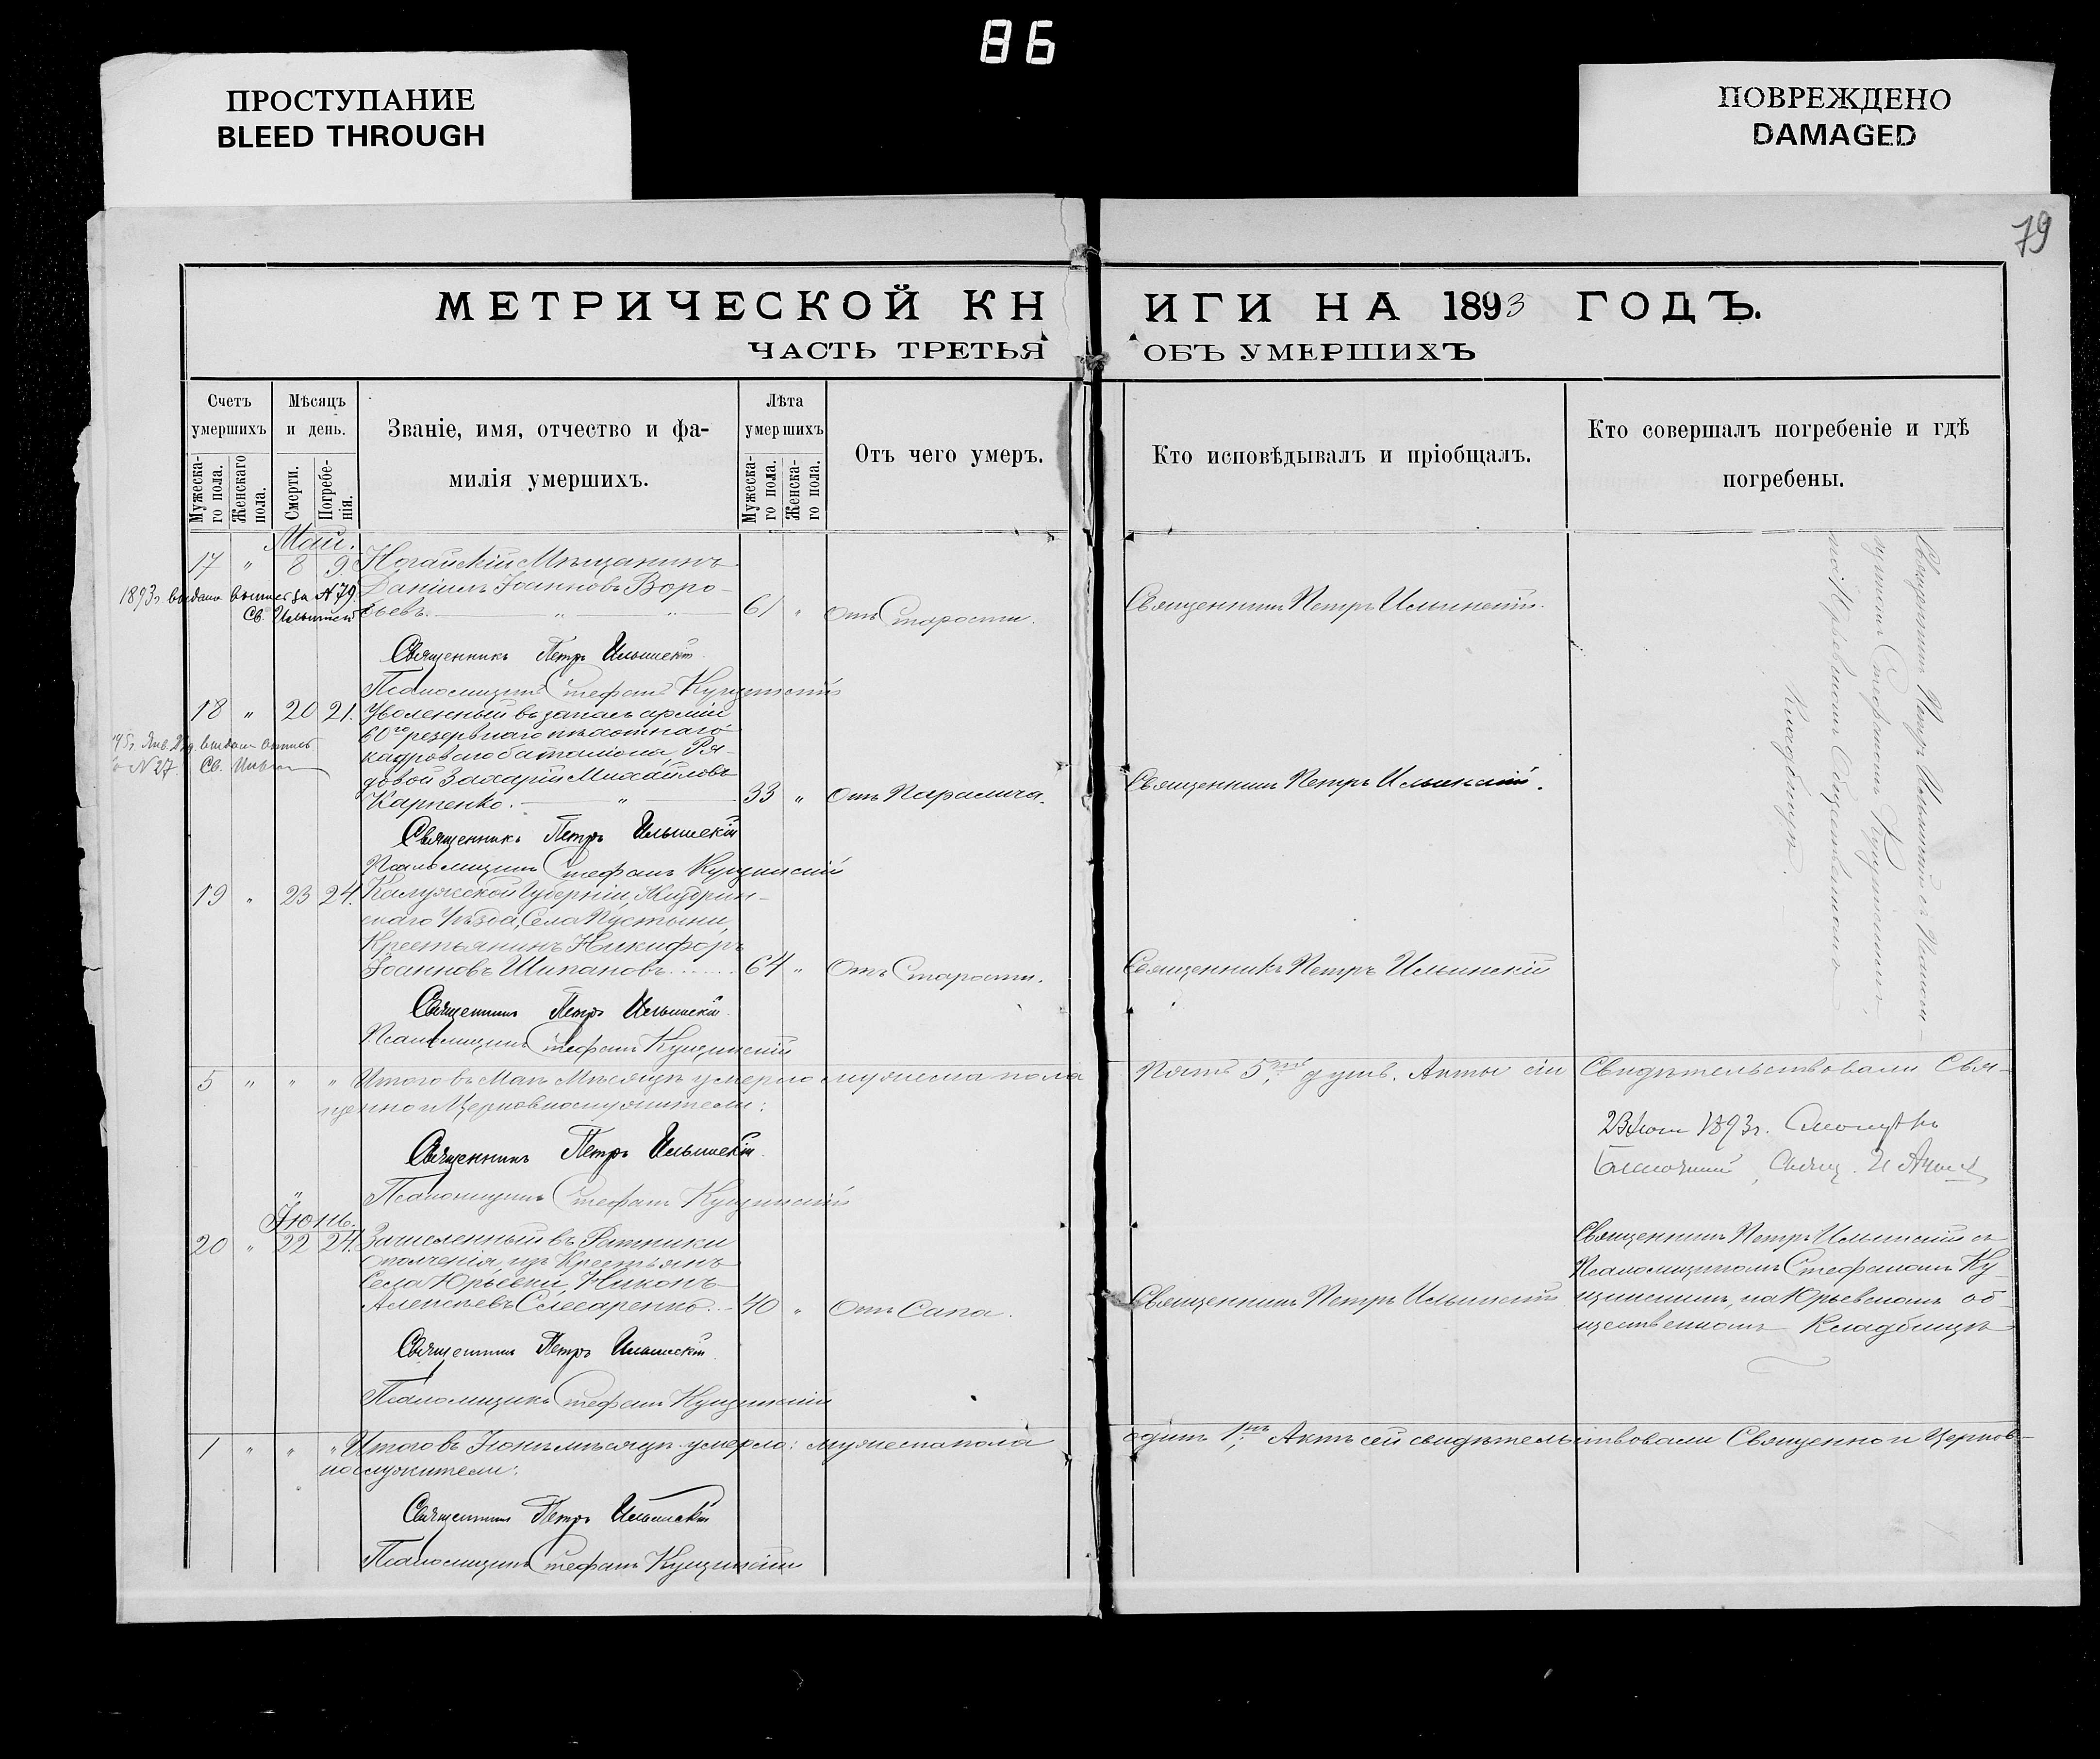 86
ПРОСТУПАНИЕ
BLEED THROUGH
ПОВРЕЖДЕНО
DAMAGED
79
МЕТРИЧЕСКОЙ КНИГИ НА 1893 ГОДЪ.
ЧАСТЬ ТРЕТЬЯ ОБЪ УМЕРШИХЪ
Счетъ умершихъ
Мужеска-го пола.
Женскаго пола.
Мѣсяцъ и день.
Смерти.
Погребе-нія.
Званіе, имя, отчество и фа-
милія умершихъ.
Лѣта умершихъ
Мужеска-го пола.
Женска-го пола.
Отъ чего умеръ.
Кто исповѣдывалъ и пріобщалъ.
Кто совершалъ погребеніе и гдѣ
погребены.
Май.
17 " 8 9 Ногайскій Мѣщанинъ
Даніилъ Іоанновъ Воро-
бьевъ. " " 61 " Отъ Старости. Священникъ Петръ Ильинскій.
1893 г. выдана выпись за № 79.
Св. Ильинскій
Священникъ Петръ Ильинскій
Псаломщикъ Стефанъ Кущинскій
18 " 20 21. Уволенный въ запасъ арміи
60го резервнаго пѣхотнаго
кадроваго баталіона, Ря-
довой Захарій Михайловъ
Карпенко. " 33 " Отъ Паралича. Священникъ Петръ Ильинскій.
№ 27. Св.
Священникъ Петръ Ильинскій
Псаломщикъ Стефанъ Кущинскій
19 " 23 24. Калужской Губерніи, Жиздрин-
скаго Уѣзда, Села Пустыни,
Крестьянинъ Никифоръ
Іоанновъ Шипановъ 64 " Отъ Старости. Священникъ Петръ Ильинскій
Священникъ Петръ Ильинскій
Псаломщикъ Стефанъ Кущинскій
Священникъ Петръ Ильинскій съ Псалом-
щикомъ Стефаномъ Кущинскимъ,
на Юрьевскомъ Общественномъ
Кладбищѣ.
5 " " " Итого въ Маѣ Мѣсяцѣ умерло мужеска пола Пять 5 душъ. Акты сіи Свидѣтельствовали Свя-
щенно и Церковнослужители:
Священникъ Петръ Ильинскій
1893 г.
Благочинный, Свящ.
Псаломщикъ Стефанъ Кущинскій
Іюнь.
20 " 22 24. Зачисленный въ Ратники
ополченія, изъ Крестьянъ
Села Юрьевки, Никонъ
Алексѣевъ Слесаренко. 40 " Отъ Сапа. Священникъ Петръ Ильинскій
Священникъ Петръ Ильинскій съ
Псаломщикомъ Стефаномъ Ку-
щинскимъ, на Юрьевскомъ об-
щественномъ Кладбищѣ
Священникъ Петръ Ильинскій
Псаломщикъ Стефанъ Кущинскій
1 " " " Итого въ Іюнѣ мѣсяцѣ умерло: мужеска пола одинъ 1. Актъ сей свидѣтельствовали Священно и Церков-
нослужители:
Священникъ Петръ Ильинскій
Псаломщикъ Стефанъ Кущинскій